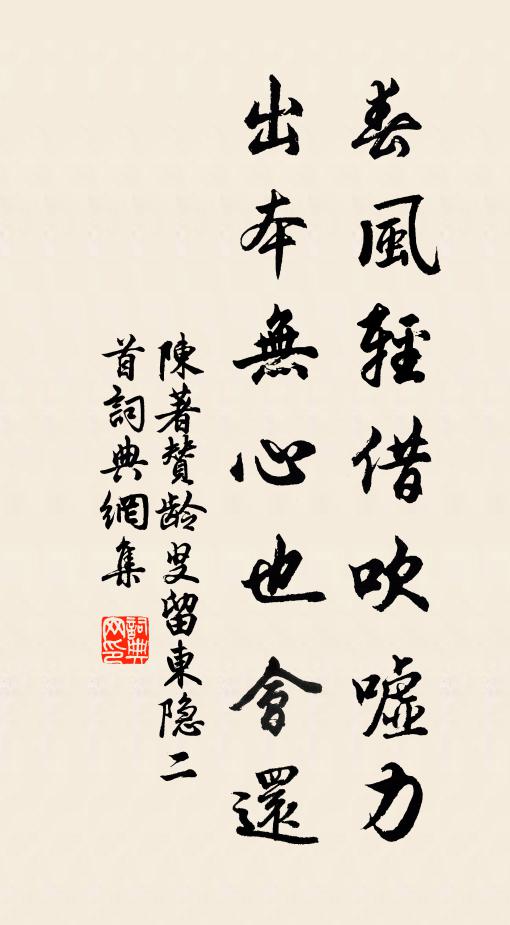 春風輕借吹噓力
出本無心也會還
陳著賛龄叟留東隐二
首詞典網集
詞典
网印